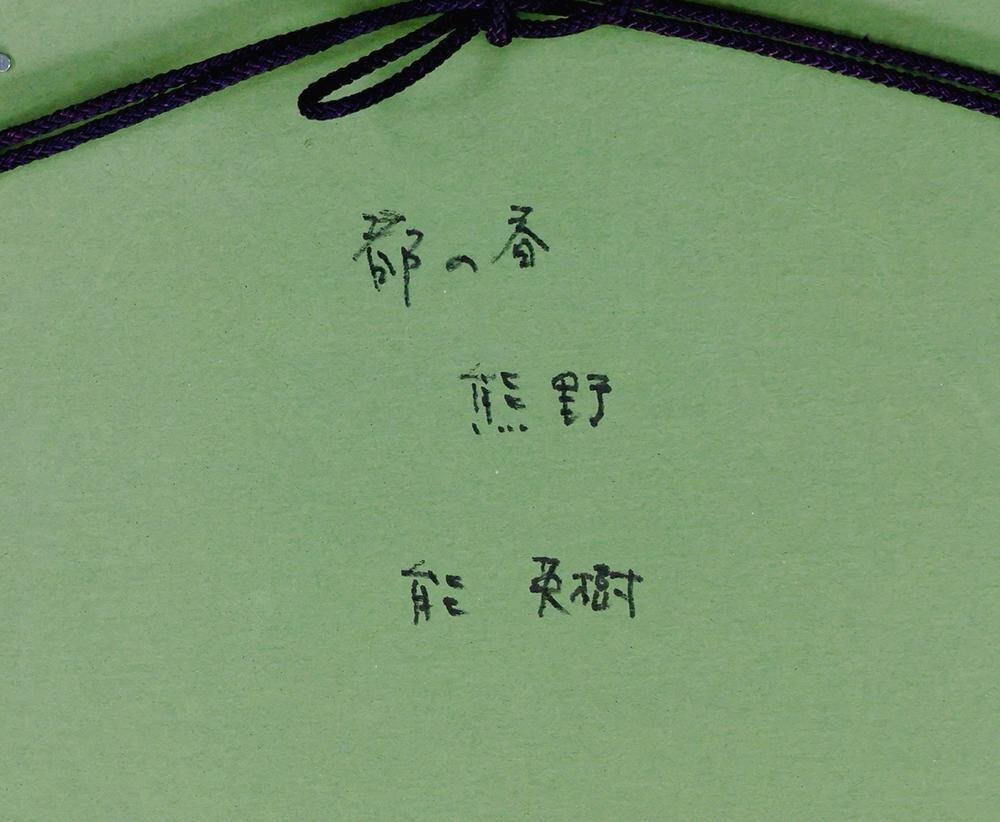 都の春
熊野
能 英樹